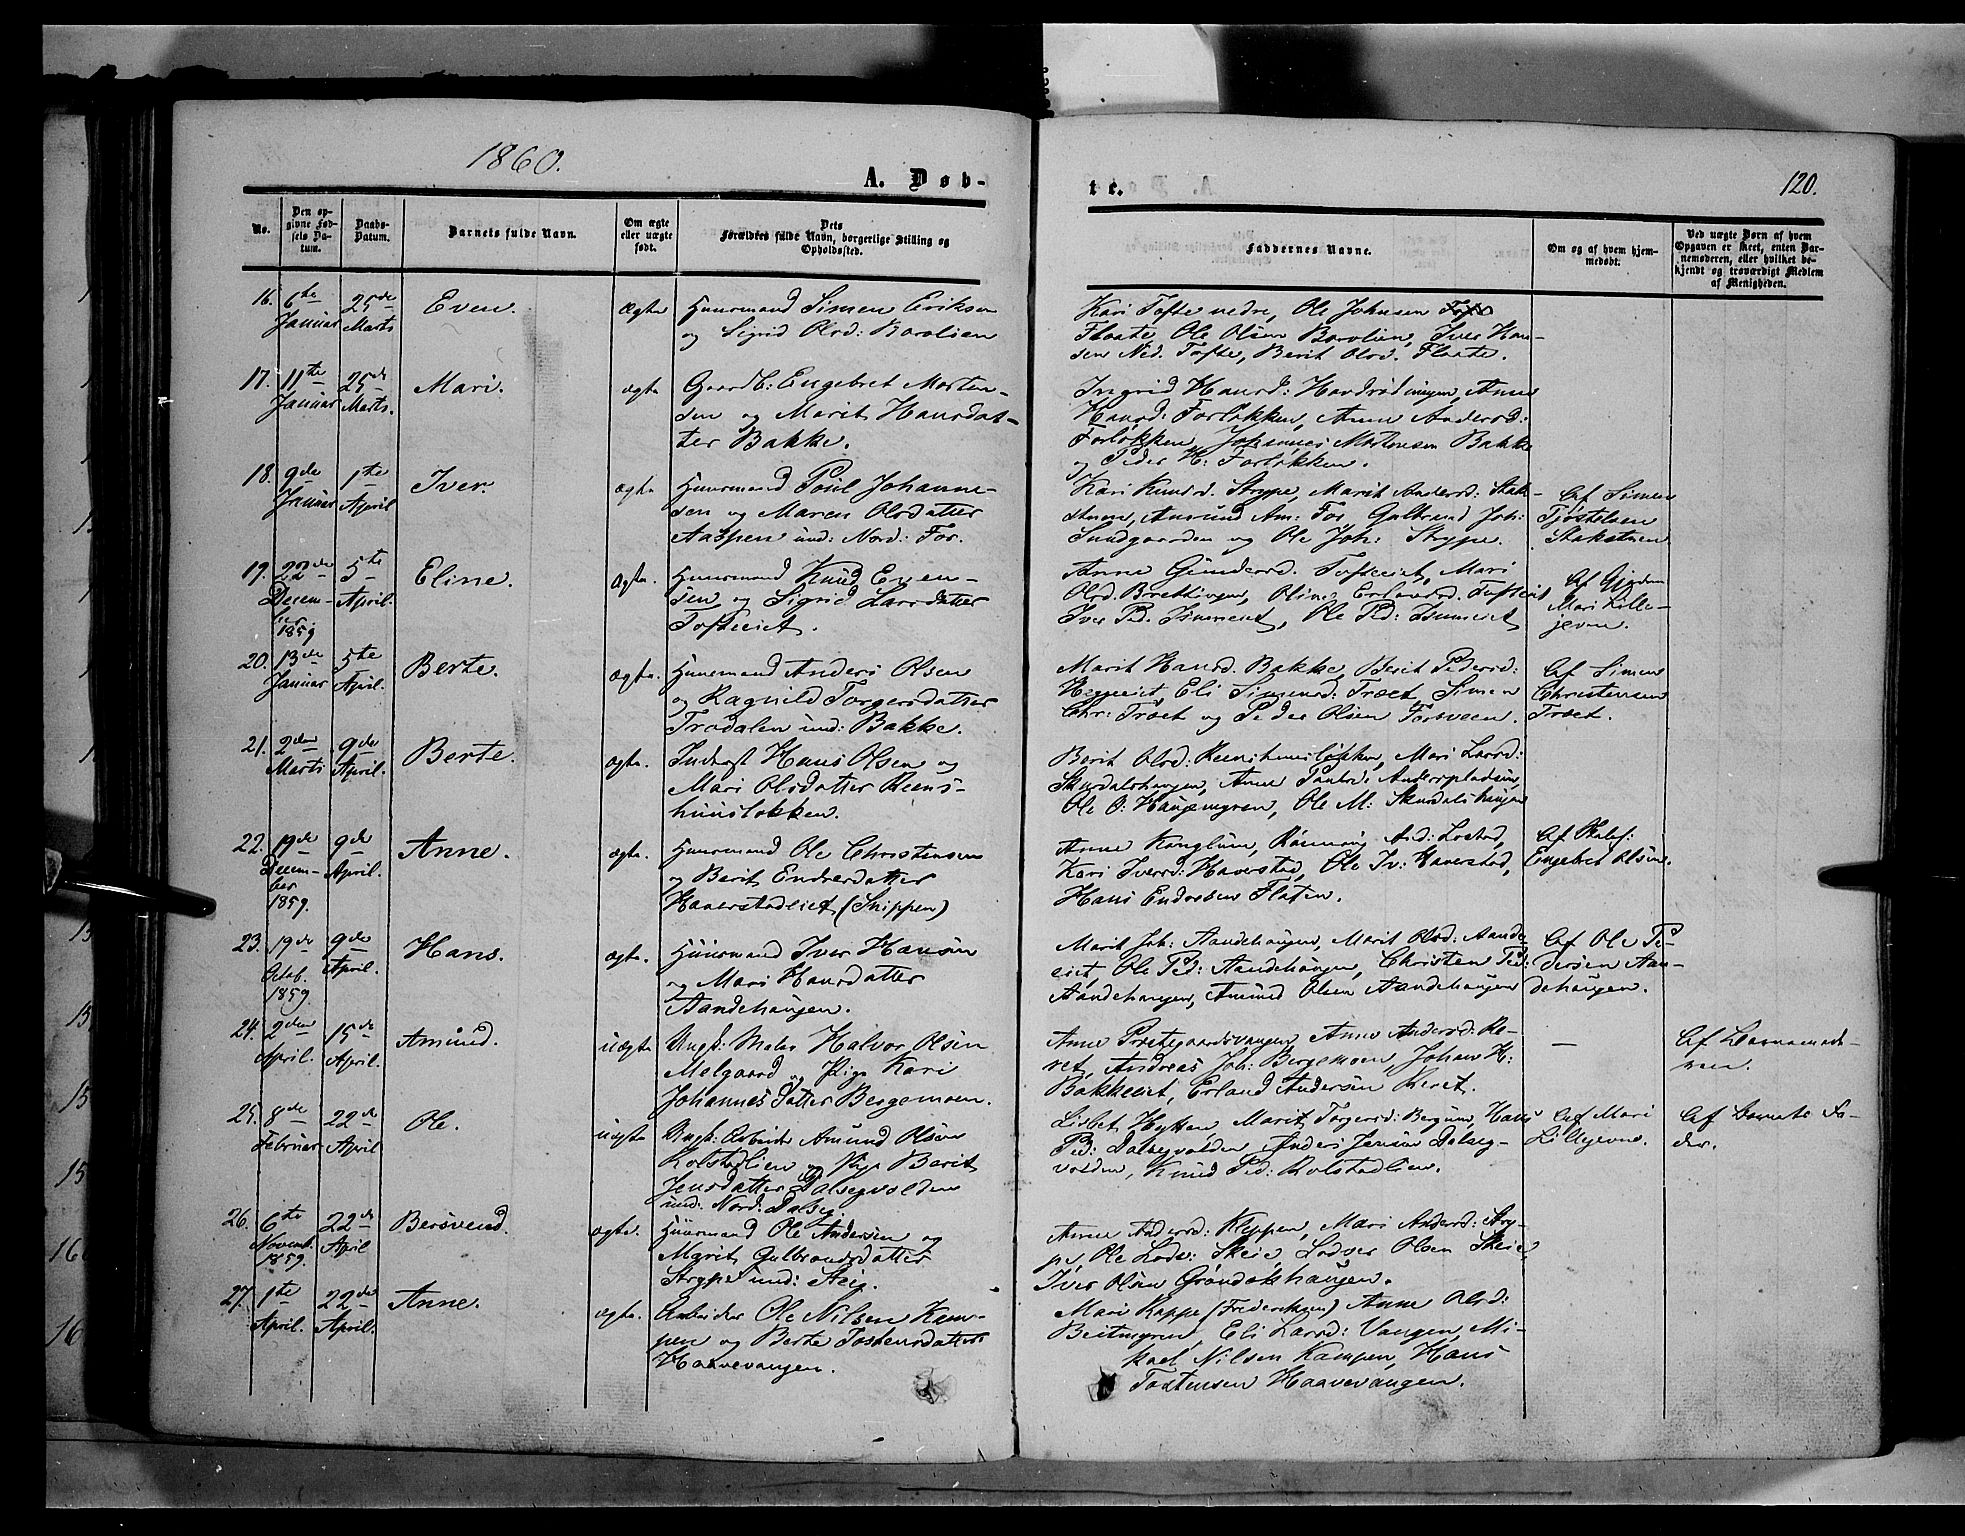 1860.
A. Døb-
te.
120.
No.
Den op-
givne Fød-
sels Da-
tum.
Daabs-
Datum.
Barnets fulde Navn.
Om ægte
eller uægte
født.
Dets
Forældres fulde Navn, borgerlige Stilling og
Opholdssted.
Faddernes Navne.
Om og af hvem hjem-
medøbt.
Ved uægte Børn af hvem
Opgaven er skeet, enten Bar-
nemoderen, eller hvilket be-
kjendt og troværdigt Medlem
af Menigheden.
16. 6te Januar 25de Marts Even. Ægte Huusmand Simen Eriksen
og Sigrid Olsd: Barolien
Kari Tofte nedre, Ole Johnsen
Flaate, Ole Olsen Barolien, Iver Han-
sen Ned. Tofte, Berit Olsd. Flaate.
17. 11te Januar 25de Marts. Mari. ægte Gaardb: Engebret Morten-
sen og Marit Hansdat-
ter Bakke.
Ingrid Hansd: Anne
Hansd: Forløkken, Anne Andersd:
Forløkken, Johannes Mortensen Bakke
og Peder H: Forløkken.
18. 9de Januar 1te April Iver. ægte Huusmand Poul Johanne-
sen og Maren Olsdatter
Aaspen und: Nord: For.
Kari Knudsd. Strype, Marit Andersd: Stak-
stuen, Amund Am: For, Gulbrand Joh:
Sundgaarden og Ole Joh: Strype.
Af Simen
Tjøstelsen
Stakstuen
19. 22de Decem-
ber 1859 5te April. Eline. Ægte. Huusmand Knud Even-
sen og Sigrid Larsdatter
Tofteeiet.
Anne Gundersd. Tofteeiet, Mari
Olsd. Brættingen, Oline Erlandsd. Tofteeiet
Iver Ped. Ole Ped:
Af Gjordm
Mari Lille-
jevne.
20. 13de Januar 5te April. Berte. ægte. Huusmand Anders Olsen
og Ragnild Torgersdatter
Trødalen und: Bakke.
Marit Hansd. Bakke, Berit Pedersd:
Eli Simensd: Træet, Simen
Chr: Træet og Peder Olsen Forsveen.
Af Simen
Christensen
Træet.
21. 2den Marts 9de April. Berte. ægte. Inderst Hans Olsen og
Mari Olsdatter Reens-
huusløkken.
Berit Olsd: Reenshuusløkken, Mari Larsd:
Skurdalshaugen, Anne Paulsd: Anderspladsen,
Ole O: Haugemyren, Ole M: Skurdalshaugen
22. 19de Decem-
ber 1859. 9de April. Anne. ægte. Huusmand Ole Christensen
og Berit Endresdatter
Haverstadeiet (Snippen)
Anne Konglum, Rønnoug And: Lostad,
Kari Iversd: Haverstad, Ole Iv: Haverstad,
Hans Endresen Flaten.
Af Skolef:
Engebret Olsen.
23. 19de Octob. 1859. 9de April. Hans. ægte. Huusmand Iver Hansen
og Mari Hansdatter
Aandehaugen.
Marit Joh: Aandehaugen, Marit Olsd: Aande-
eiet, Ole Ped: Aandehaugen, Christen Ped:
Aandehaugen, Amund Olsen Aandehaugen
Af Ole Pe-
dersen Aan-
dehaugen.
24. 2den April. 15de April. Amund. uægte Ungk: Maler Halvor Olsen
Melgaard og Pige Kari
Johannes Datter Bergemoen.
Anne Prestegaardsvangen, Anne Andersd: Re-
vet, Andreas Joh: Bergemoen, Johans H:
Bakkeeiet, Erland Andersen Revet.
—
Af Barnemode-
ren.
25. 8de Februar 22de April Ole. uægte Ungk: Arbeider Amund Olsen
Kolstadlien og Pige Berit
Jensdatter Dalsegvolden
und: Nord: Dalseg.
Lisbet Hytten, Marit Torgersd: Bergum, Hans
Ped: Dalsegvolden, Anders Jensen Dalseg-
volden, Knud Ped: Kolstadlien.
Af Mari
Lillejevne.
Af Barnets Fa-
der.
26. 6te Novemb. 1859. 22de April Bersvend. ægte. Huusmand Ole Andersen og
Marit Gulbrandsdatter
Strype und: Steig.
Anne Andersd: Kleppen, Mari Andersd: Stry-
pe, Ole Lods: Skeie, Lodver Olsen Skeie,
Iver Olsen Grøndalshaugen.
27. 1te April. 22de April. Anne. ægte. Arbeider Ole Nilsen Kam-
pen og Berte Tostensdatter
Haavevangen.
Mari Kappe (Frederiksen) Anne Olsd:
Beitmyren, Eli Larsd: Vangen, Mi-
kael Nilsen Kampen, Hans
Tostensen Haavevangen.